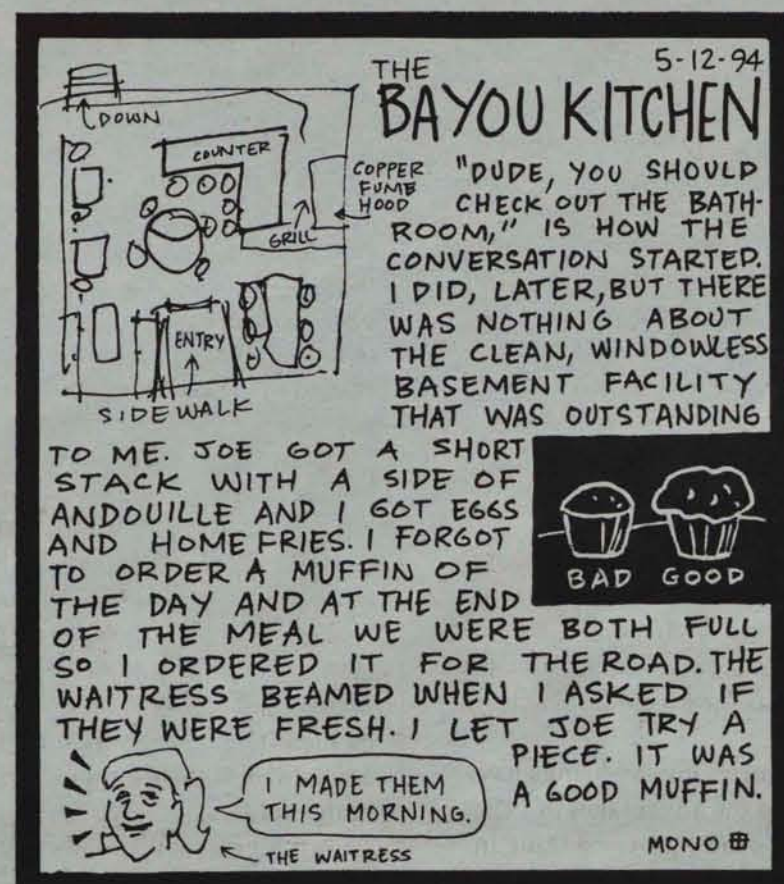 5-12-94
THE
BAYOU KITCHEN
DOWN
COUNTER
COPPER
FUME
HOOD
GRILL
ENTRY
SIDEWALK
"DUDE, YOU SHOULD
CHECK OUT THE BATH-
ROOM," IS HOW THE
CONVERSATION STARTED.
I DID, LATER, BUT THERE
WAS NOTHING ABOUT
THE CLEAN, WINDOWLESS
BASEMENT FACILITY
THAT WAS OUTSTANDING
TO ME. JOE GOT A SHORT
STACK WITH A SIDE OF
ANDOUILLE AND I GOT EGGS
AND HOME FRIES. I FORGOT
TO ORDER A MUFFIN OF
THE DAY AND AT THE END
OF THE MEAL WE WERE BOTH FULL
SO I ORDERED IT FOR THE ROAD. THE
WAITRESS BEAMED WHEN I ASKED IF
THEY WERE FRESH. I LET JOE TRY A
PIECE. IT WAS
A GOOD MUFFIN.
BAD GOOD
I MADE THEM
THIS MORNING.
THE WAITRESS
MONO